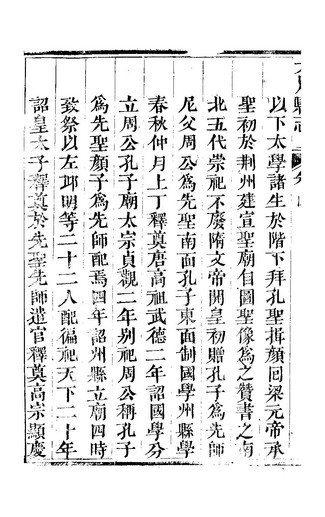 縣志
以下太學諸生於階下拜孔聖揖顏回梁元帝承
聖初於荆州建宣聖廟自圖聖像爲之贊書之南
北五代崇祀不廢隋文帝開皇初贈孔子爲先師
尼父周公爲先聖南面孔子東面制國學州縣學
春秋仲月上丁釋奠唐高祖武德二年詔國學分
立周公孔子廟太宗貞觀二年别祀周公稱孔子
爲先聖顏子爲先師配焉四年詔州縣立廟四時
致祭以左邱明等二十二人配徧祀天下二十年
詔皇太子釋奠於先聖先師遣官釋奠高宗顯慶